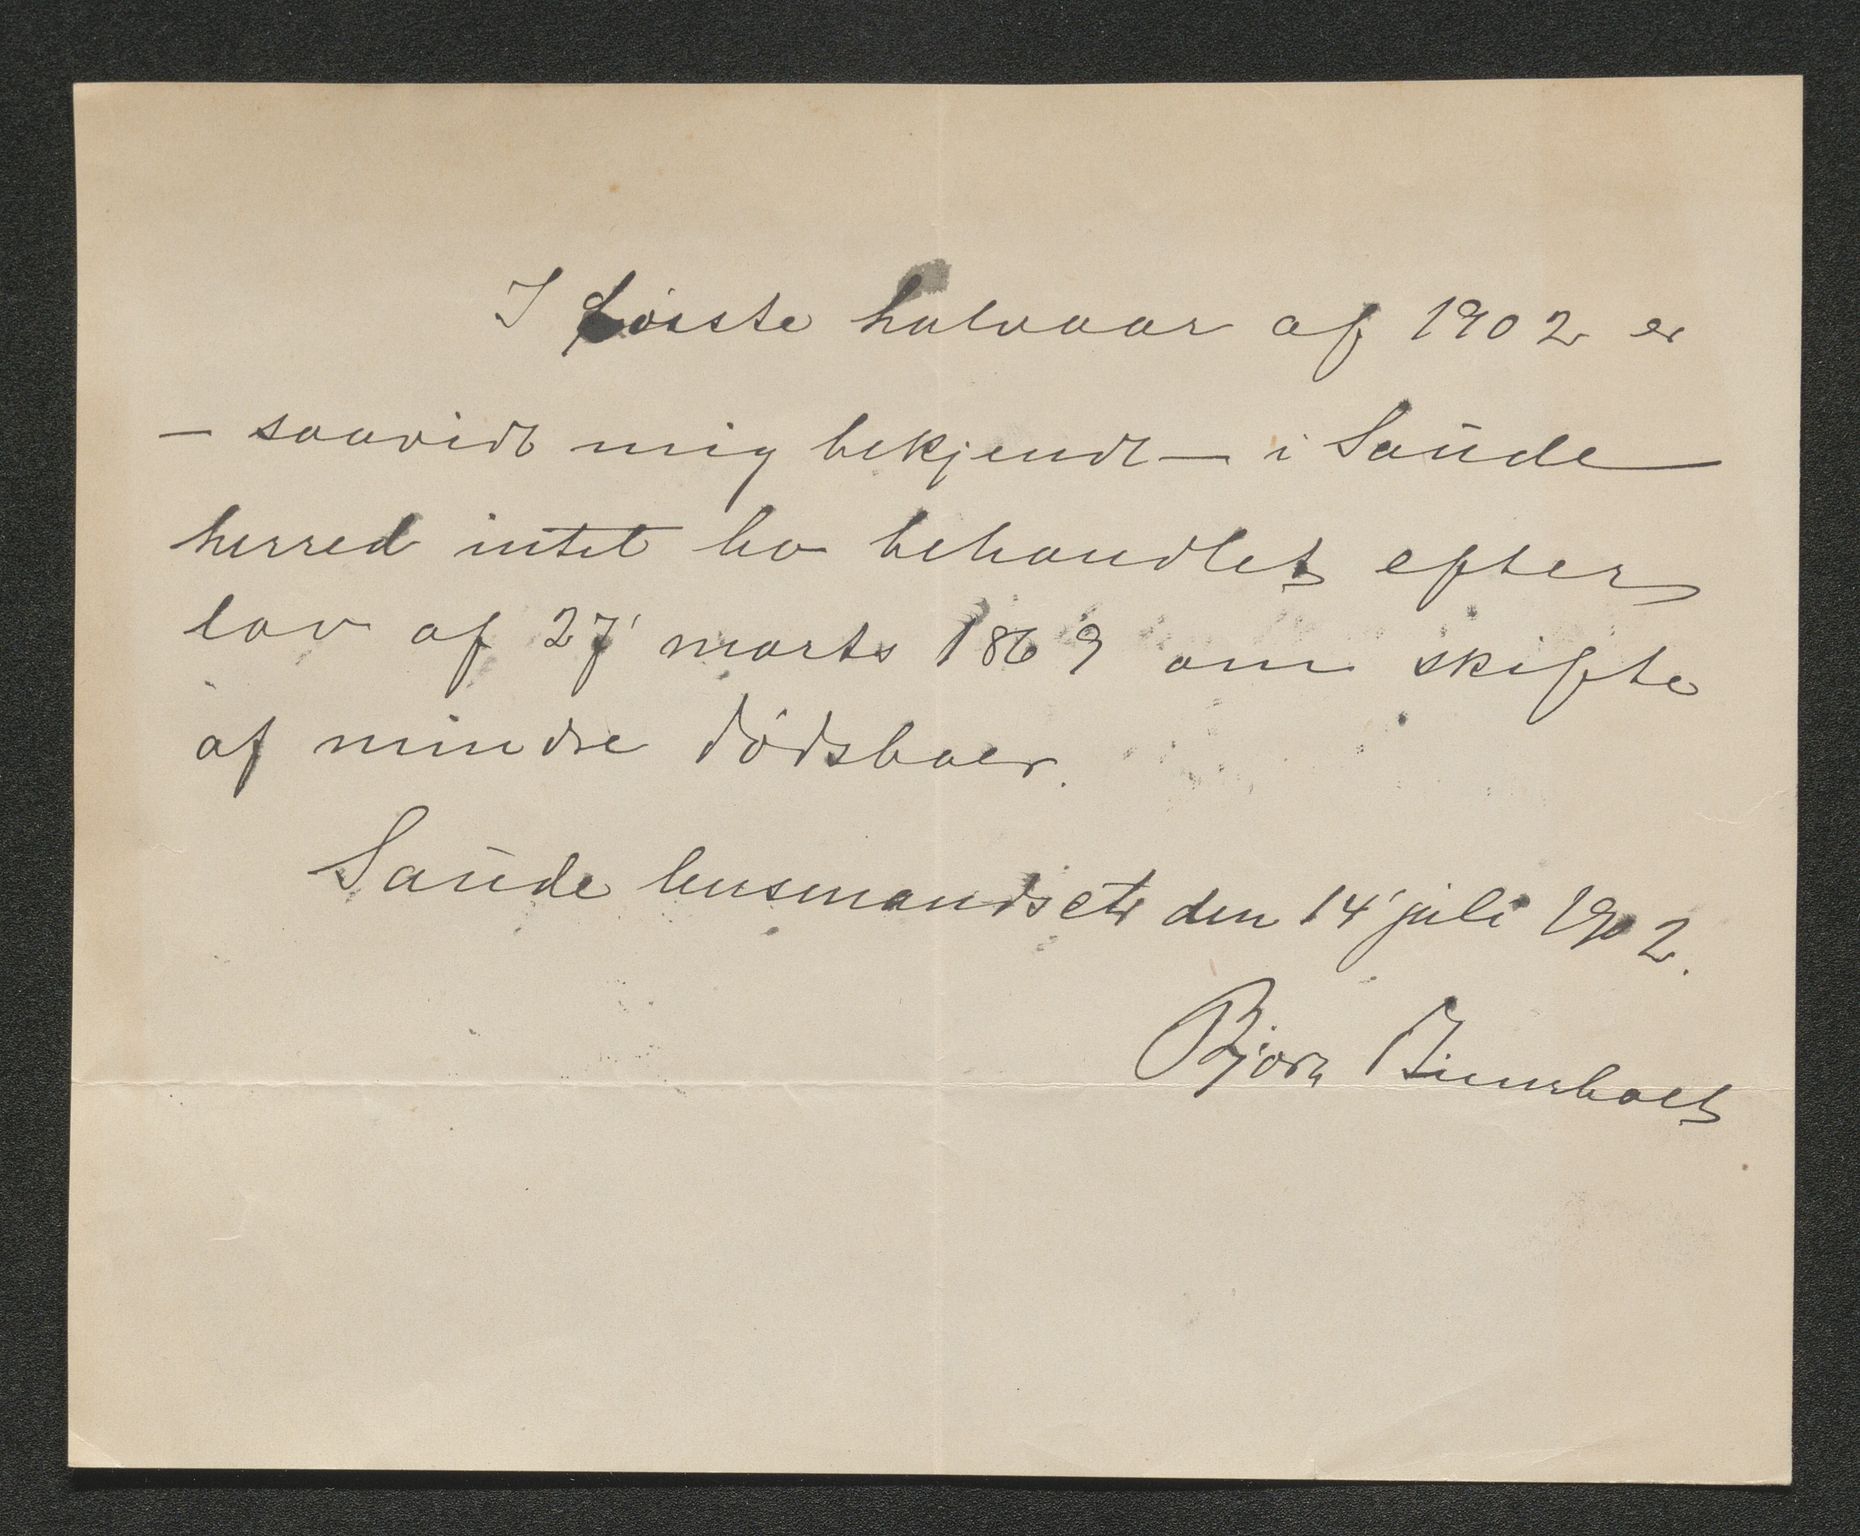 I første halvaar af 1902 er
— saavidt mig bekjendt — i Saude
herred intet bo behandlet efter
lov af 27' marts 1869 om skifte
af mindre dødsboer.
Saude den 14' juli 1902.
Bjørn